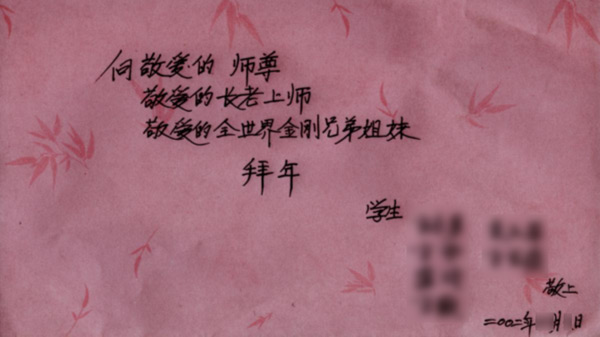 向敬爱的 师尊
敬爱的长老上师
敬爱的全世界金刚兄弟姐妹
拜年
学生
敬上
二〇〇二年 月 日